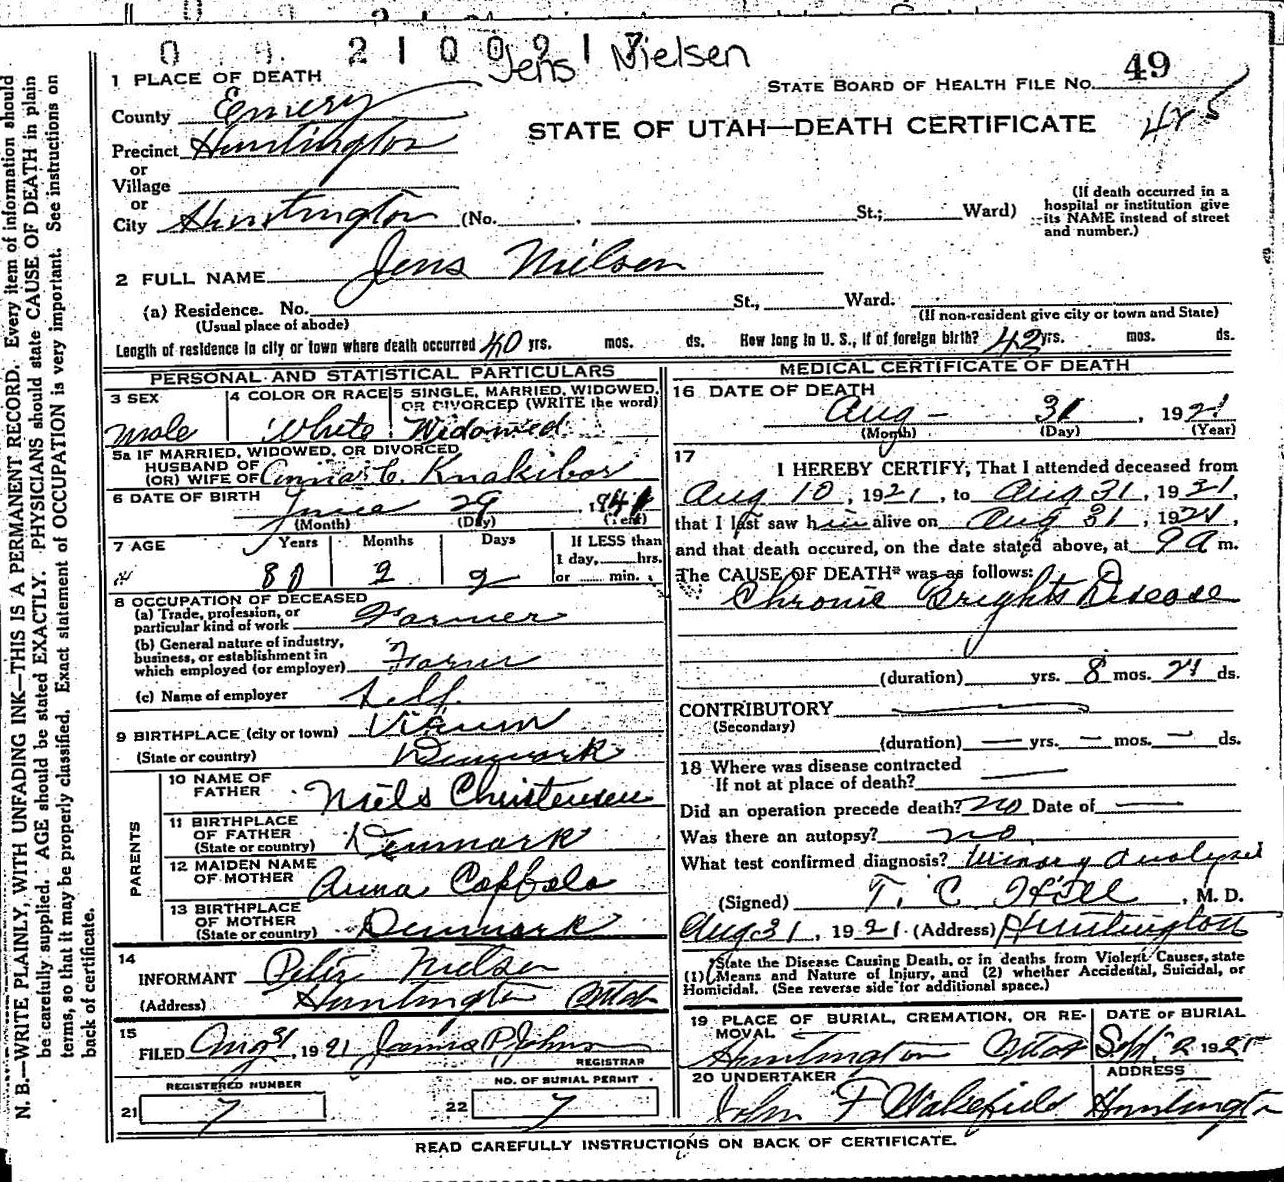 0 9. 2 1 0 0 9 1 7
Jens Nielsen
1 PLACE OF DEATH
STATE BOARD OF HEALTH FILE No. 49
County Emery
STATE OF UTAH—DEATH CERTIFICATE
Precinct Huntington
or
Village
or
City Huntington (No. St.; Ward)
(If death occurred in a
hospital or institution give
its NAME instead of street
and number.)
2 FULL NAME Jens Nielsen
(a) Residence. No. St., Ward.
(Usual place of abode)
(If non-resident give city or town and State)
Length of residence in city or town where death occurred 40 yrs. mos. ds. How long in U. S., if of foreign birth? 42 yrs. mos. ds.
PERSONAL AND STATISTICAL PARTICULARS
3 SEX
Male
4 COLOR OR RACE
White
5 SINGLE, MARRIED, WIDOWED,
OR DIVORCED (WRITE the word)
Widowed
5a IF MARRIED, WIDOWED, OR DIVORCED
HUSBAND OF
(OR) WIFE OF Anna C. Knakibor
6 DATE OF BIRTH
June 29, 1841
(Month) (Day) (Year)
7 AGE Years Months Days
80 2 2
If LESS than
1 day, hrs.
or min.
8 OCCUPATION OF DECEASED
(a) Trade, profession, or
particular kind of work Farmer
(b) General nature of industry,
business, or establishment in
which employed (or employer) Farm
(c) Name of employer Self
9 BIRTHPLACE (city or town)
(State or country) Denmark
PARENTS
10 NAME OF
FATHER Niels Christensen
11 BIRTHPLACE
OF FATHER
(State or country) Denmark
12 MAIDEN NAME
OF MOTHER Anna
13 BIRTHPLACE
OF MOTHER
(State or country) Denmark
14
INFORMANT Peter Nielsen
(Address) Huntington Utah
15
FILED Aug 31, 1921 P. Johnson
REGISTRAR
REGISTERED NUMBER
21 7
NO. OF BURIAL PERMIT
22 7
MEDICAL CERTIFICATE OF DEATH
16 DATE OF DEATH
Aug — 31, 1921
(Month) (Day) (Year)
17
I HEREBY CERTIFY, That I attended deceased from
Aug 10, 1921, to Aug 31, 1921,
that I last saw him alive on Aug 31, 1921,
and that death occured, on the date stated above, at 9 a m.
The CAUSE OF DEATH* was as follows:
Chronic Brights Disease
(duration) yrs. 8 mos. 21 ds.
CONTRIBUTORY
(Secondary)
(duration) — yrs. — mos. — ds.
18 Where was disease contracted
If not at place of death?
Did an operation precede death? no Date of —
Was there an autopsy? no
What test confirmed diagnosis? Urinary analysis
(Signed) T. C. Hill, M. D.
Aug 31, 1921 (Address) Huntington
*State the Disease Causing Death, or in deaths from Violent Causes, state
(1) Means and Nature of Injury, and (2) whether Accidental, Suicidal, or
Homicidal. (See reverse side for additional space.)
19 PLACE OF BURIAL, CREMATION, OR RE-
MOVAL
Huntington Utah
DATE OF BURIAL
Sept 2 1921
20 UNDERTAKER
John F Wakefield
ADDRESS
Huntington
READ CAREFULLY INSTRUCTIONS ON BACK OF CERTIFICATE.
N. B.—WRITE PLAINLY, WITH UNFADING INK—THIS IS A PERMANENT RECORD. Every item of information should
be carefully supplied. AGE should be stated EXACTLY. PHYSICIANS should state CAUSE OF DEATH in plain
terms, so that it may be properly classified. Exact statement of OCCUPATION is very important. See instructions on
back of certificate.